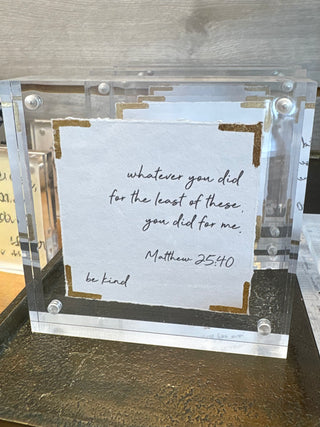 whatever you did
for the least of these,
you did for me.
Matthew 25:40
be kind